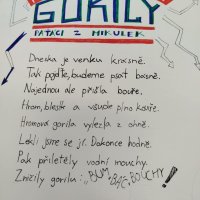 GORILY
PAŤÁCI Z MIKULEK
Dneska je venku krásně.
Tak pojďte, budeme psát básně.
Najednou ale přišla bouře.
Hrom, bleskt a všude plno kouře.
Hromová gorila vylezla z ohně.
Lekli jsme se jí. Dokonce hodně.
Pak přilétly vodní mouchy.
Zničily gorilu: „BUM, BÁC, BOUCHY"!